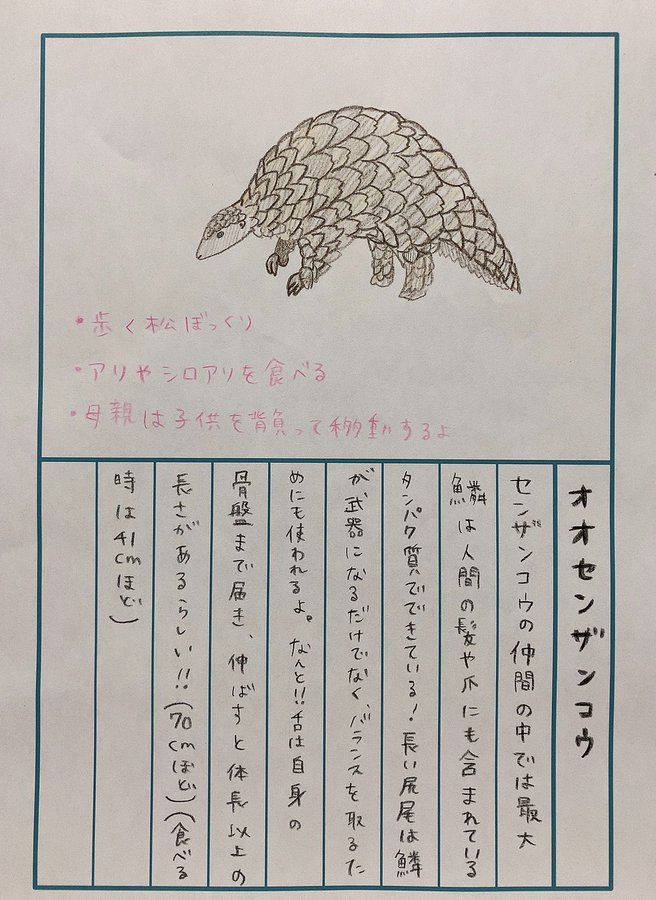 ・歩く松ぼっくり
・アリやシロアリを食べる
・母親は子供を背負って移動するよ
オオセンザンコウ
センザンコウの仲間の中では最大
鱗は人間の髪や爪にも含まれている
タンパク質でできている！長い尻尾は鱗
が武器になるだけでなく、バランスを取るた
めにも使われるよ。なんと!!舌は自身の
骨盤まで届き、伸ばすと体長以上の
長さがあるらしい!!(70cmほど)(食べる
時は41cmほど)